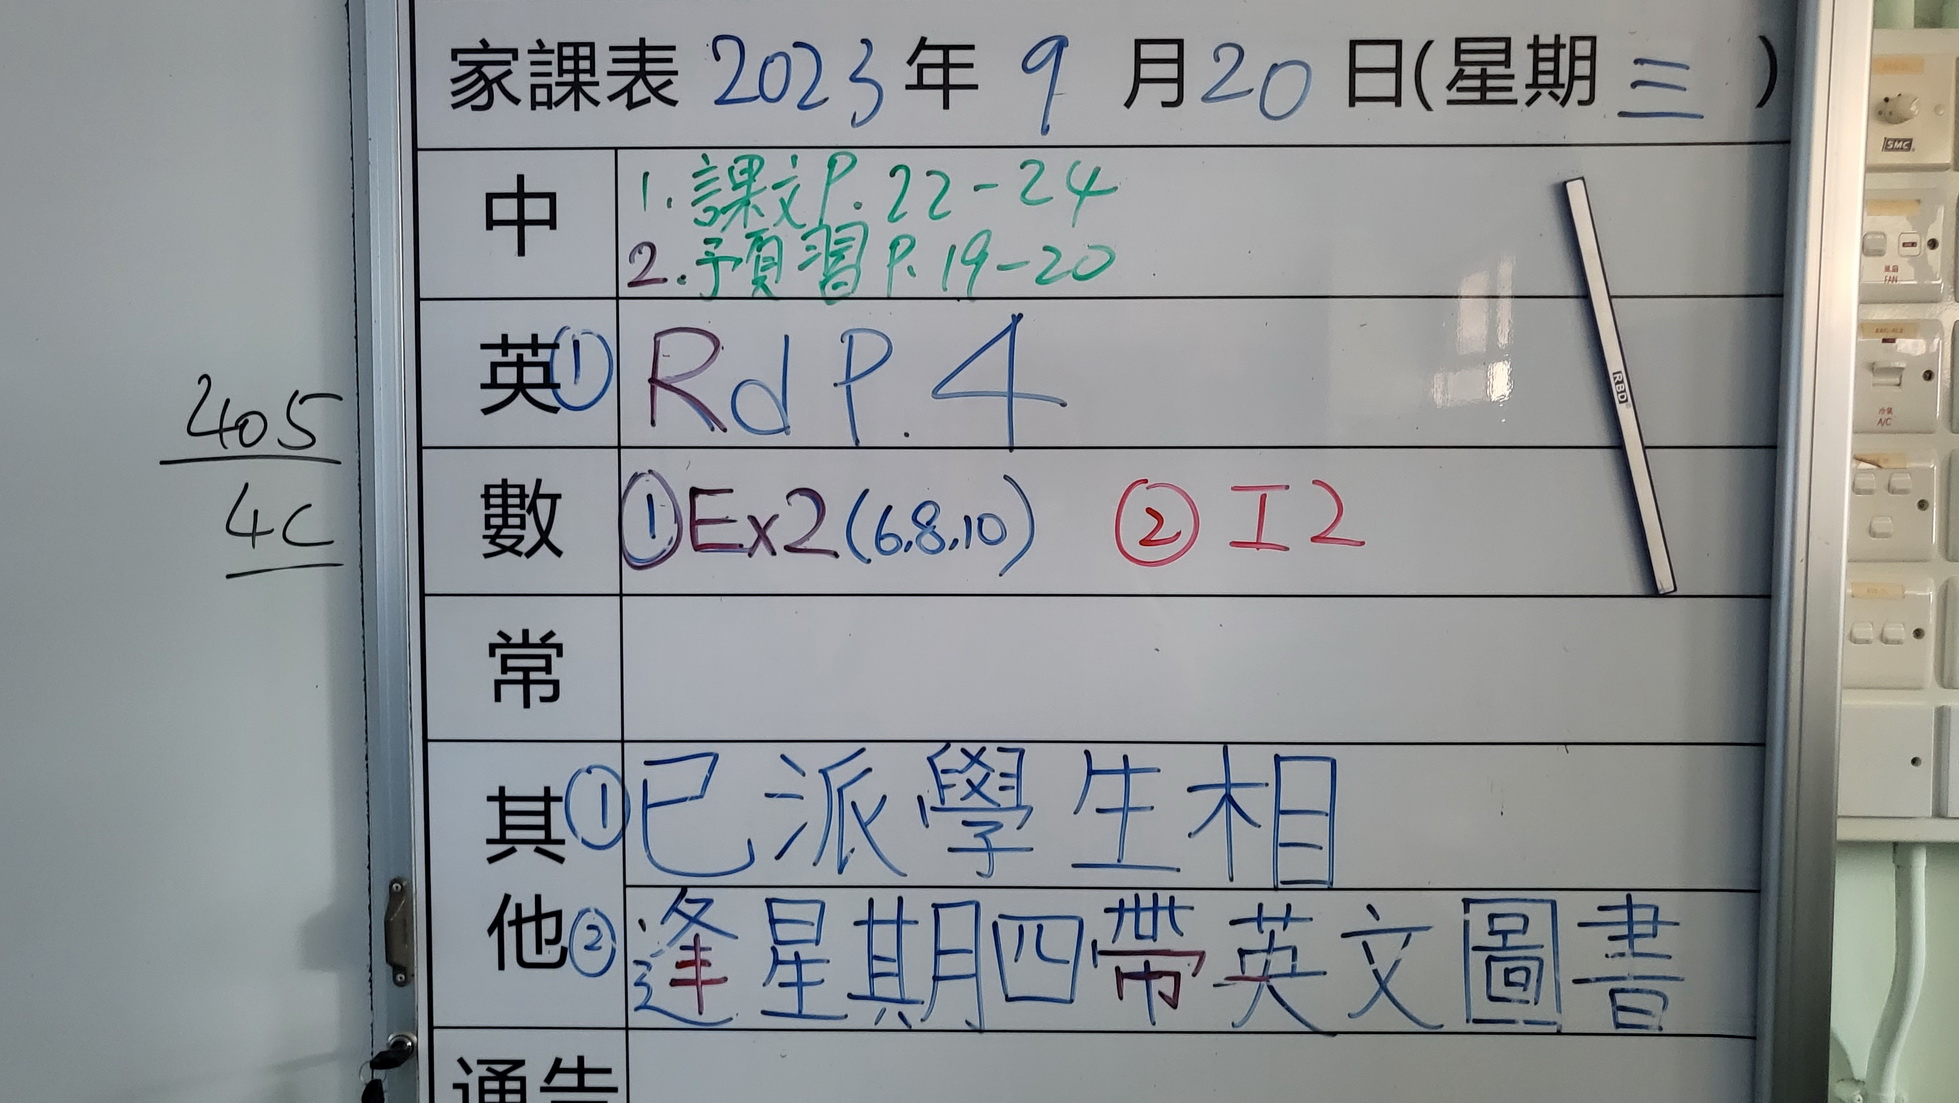 家課表 2023年 9 月20 日(星期三 )
中
1. 課文P. 22-24
2. 預習 P. 19-20
英① Rd P. 4
數 ①Ex2(6,8,10) ② I2
常
其他
①已派學生相
②逢星期四帶英文圖書
通告
405
4C
RBD
SMC
風扇
FAN
冷氣
A/C